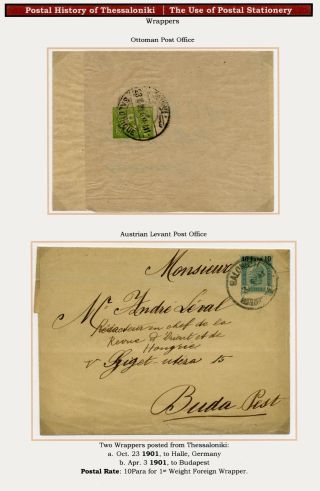 Postal History of Thessaloniki | The Use of Postal Stationery
Wrappers
Ottoman Post Office
Austrian Levant Post Office
10 Para 10
Monsieur
Mr André Léval
Rédacteur en chef de la
Revue d'Orient et de
Hongrie
Sziget-utcza 15
Buda Pest
Two Wrappers posted from Thessaloniki:
a. Oct. 23 1901, to Halle, Germany
b. Apr. 3 1901, to Budapest
Postal Rate: 10Para for 1st Weight Foreign Wrapper.